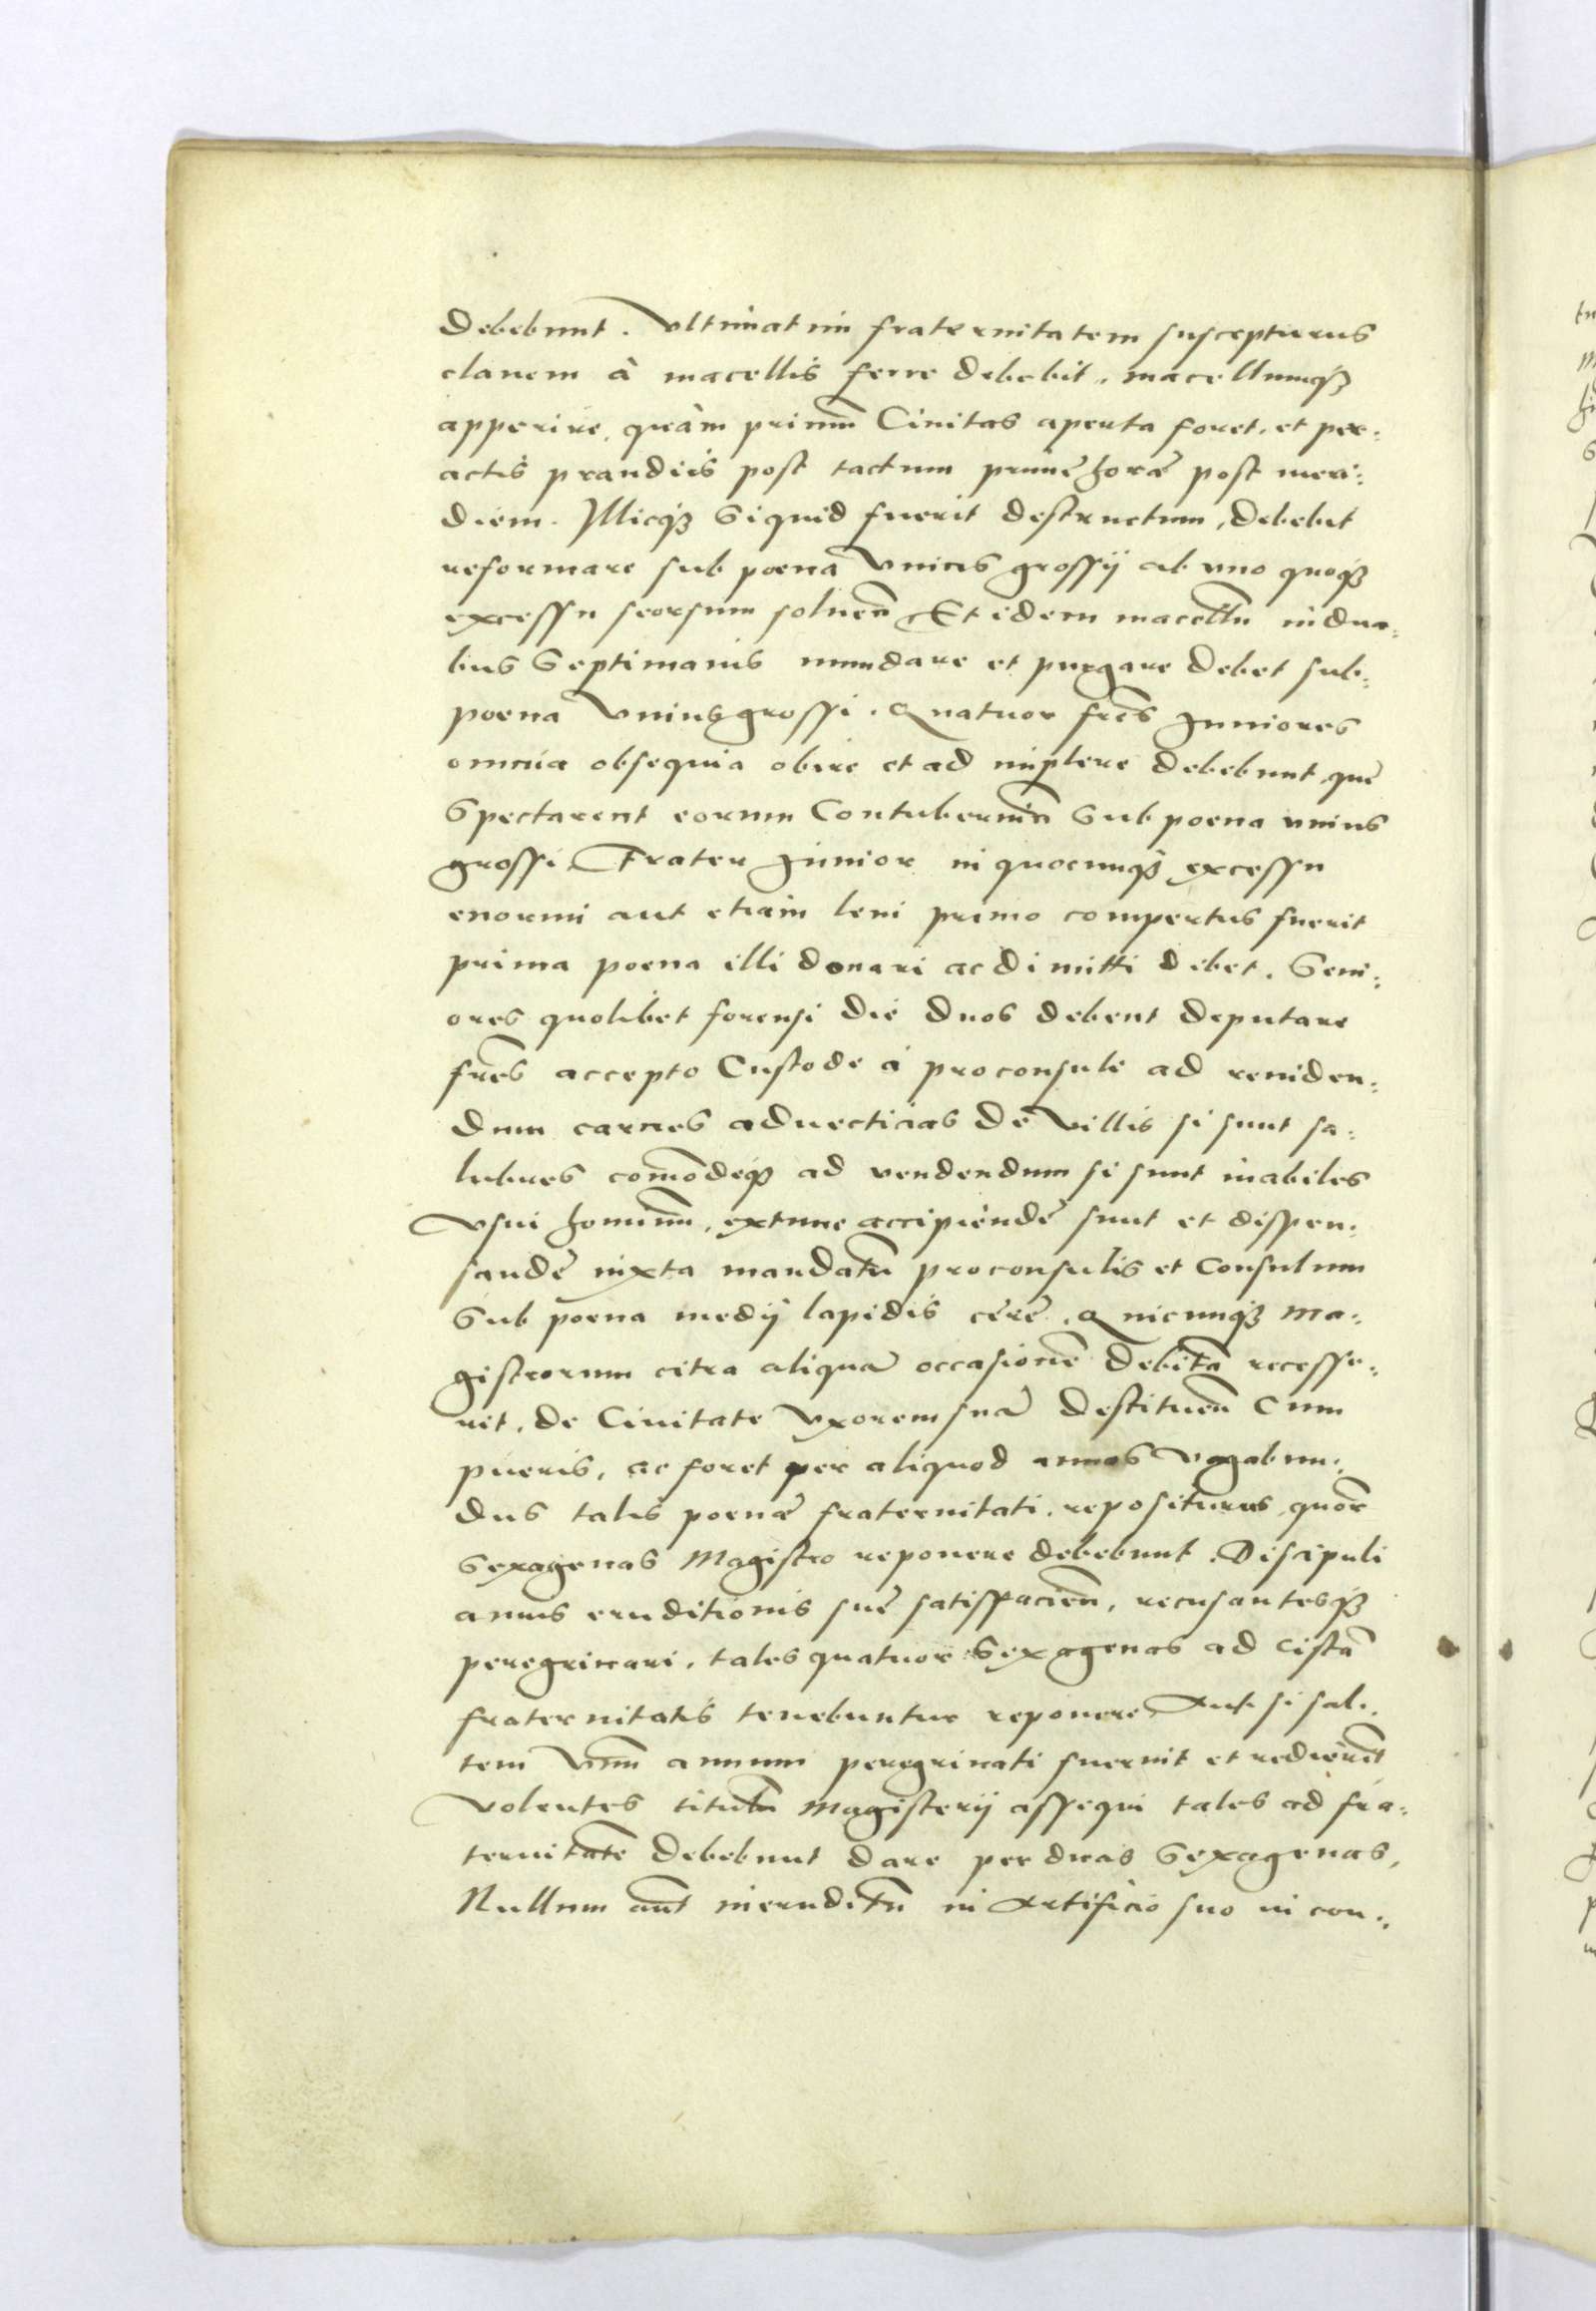 debebunt. Vltimatim fraternitatem suscepturus
clauem à macellis ferre debebit, macellumq3
apperire, quàm primũ Ciuitas aperta foret, et per:
actis prandiis post tactum primę horę post meri:
diem. Illicq3 siquid fuerit destructum, debebit
reformare sub poena vnius grossij ab uno quoq3
excessu seorsum soluen̄ Et idem macellũ in dua:
bus septimanis mundare et purgare debet sub:
poena vnius grossi. Quatuor fr̃es Juniores
omnia obsequia obire et ad implere debebunt, quę
spectarent eorum Contuberniũ sub poena unius
grossi. Frater Junior in quocunq3 excessu
enormi aut etiam leui primo compertus fuerit
prima poena illi donari ac dimitti debet. Seni:
ores quolibet forensi die duos debent deputare
fr̃es accepto Custode à proconsule ad reuiden:
dum carnes aduecticias de villis si sunt sa:
lubres com̃odęq3 ad vendendum si sunt inabiles
vsui hominũ, extunc accipiendę sunt et dispen:
sandę iuxta mandatũ proconsulis et Consulum
sub poena medij lapidis cerę. Quicunq3 ma:
gistrorum citra aliquã occasionẽ debitã recesse:
rit, de Ciuitate vxorem suã destituen̄ Cum
pueris, ac foret per aliquod annos vagabun:
dus talis poenę fraternitati, repositurus, quõr
sexagenas Magistro reponere debebunt. Discipuli
annis eruditionis suę satisfacien̄, recusantesq3
peregrinari, tales quatuor sexagenas ad cistã
fraternitatis tenebuntur reponere, Aut si sal:
tem vnũ annum peregrinati fuerint et redierint
volentes titulũ Magisterij assequi tales ad fra:
ternitatẽ debebunt dare per duas sexagenas,
Nullum aũt ineruditũ in Artificio suo in con: